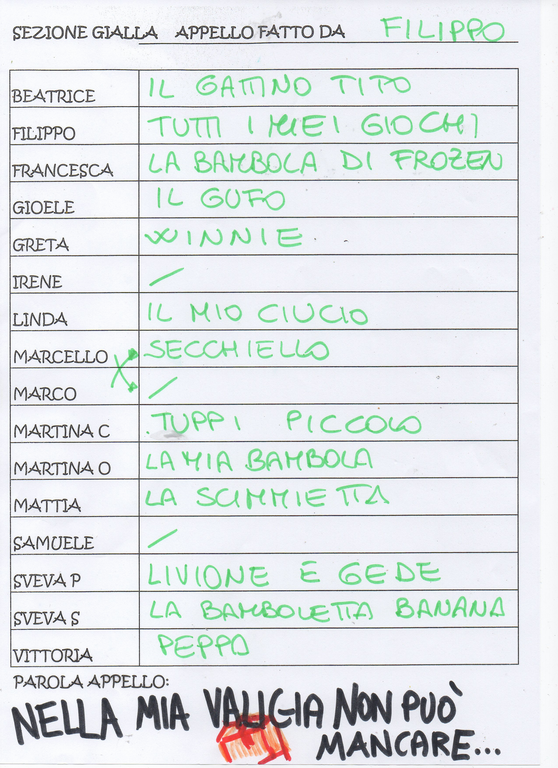 SEZIONE GIALLA APPELLO FATTO DA FILIPPO
BEATRICE IL GATTINO TIPO
FILIPPO TUTTI I MIEI GIOCHI
FRANCESCA LA BAMBOLA DI FROZEN
GIOELE IL GUFO
GRETA WINNIE
IRENE /
LINDA IL MIO CIUCIO
MARCELLO SECCHIELLO
MARCO /
MARTINA C TUPPI PICCOLO
MARTINA O LA MIA BAMBOLA
MATTIA LA SCIMMIETTA
SAMUELE /
SVEVA P LIVIONE E GEDE
SVEVA S LA BAMBOLETTA BANANA
VITTORIA PEPPA
PAROLA APPELLO:
NELLA MIA VALIGIA NON PUÒ
MANCARE...